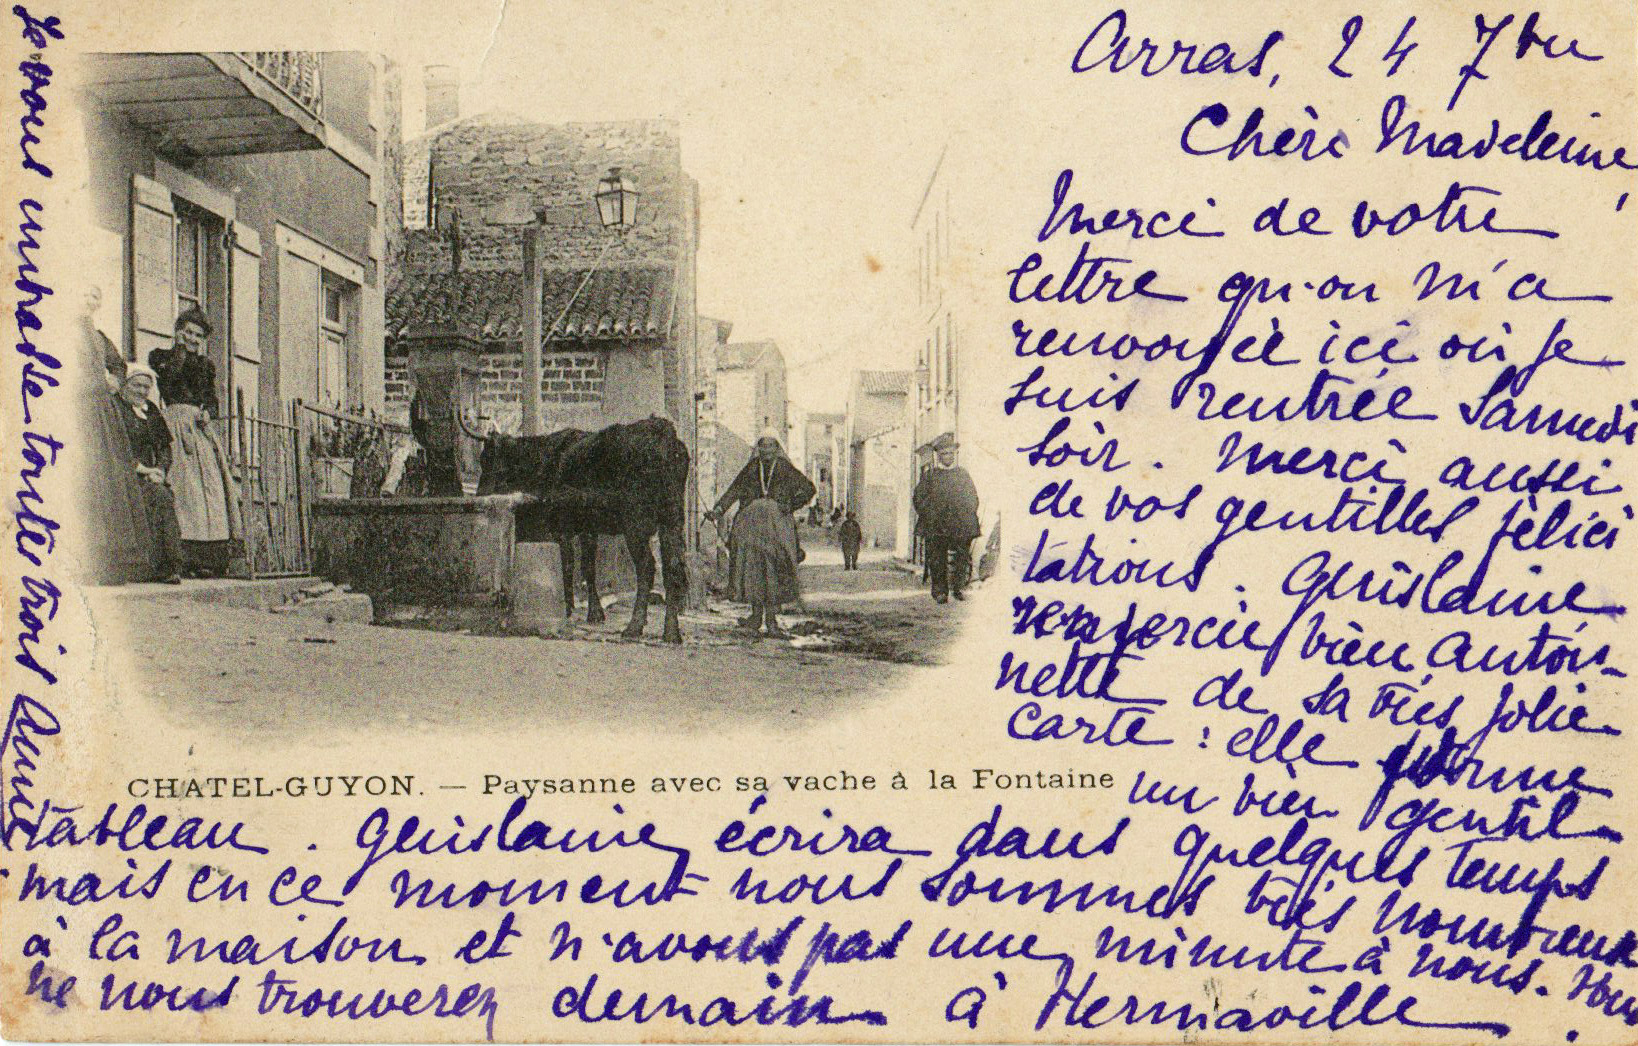 Arras, 24 7bre
Chère Madeleine,
Merci de votre
lettre qu'on m'a
renvoyée ici où je
suis rentrée samedi
soir. Merci aussi
de vos gentilles félici
tations. Ghislaine
remercie bien Antoi-
nette de sa très jolie
carte : elle forme
un bien gentil
tableau. Ghislaine écrira dans quelques temps
mais en ce moment nous sommes très nombreux
à la maison et n'avons pas une minute à nous. Vous
ne nous trouverez demain à Hermaville.
Je vous embrasse toutes trois
CHATEL-GUYON. — Paysanne avec sa vache à la Fontaine